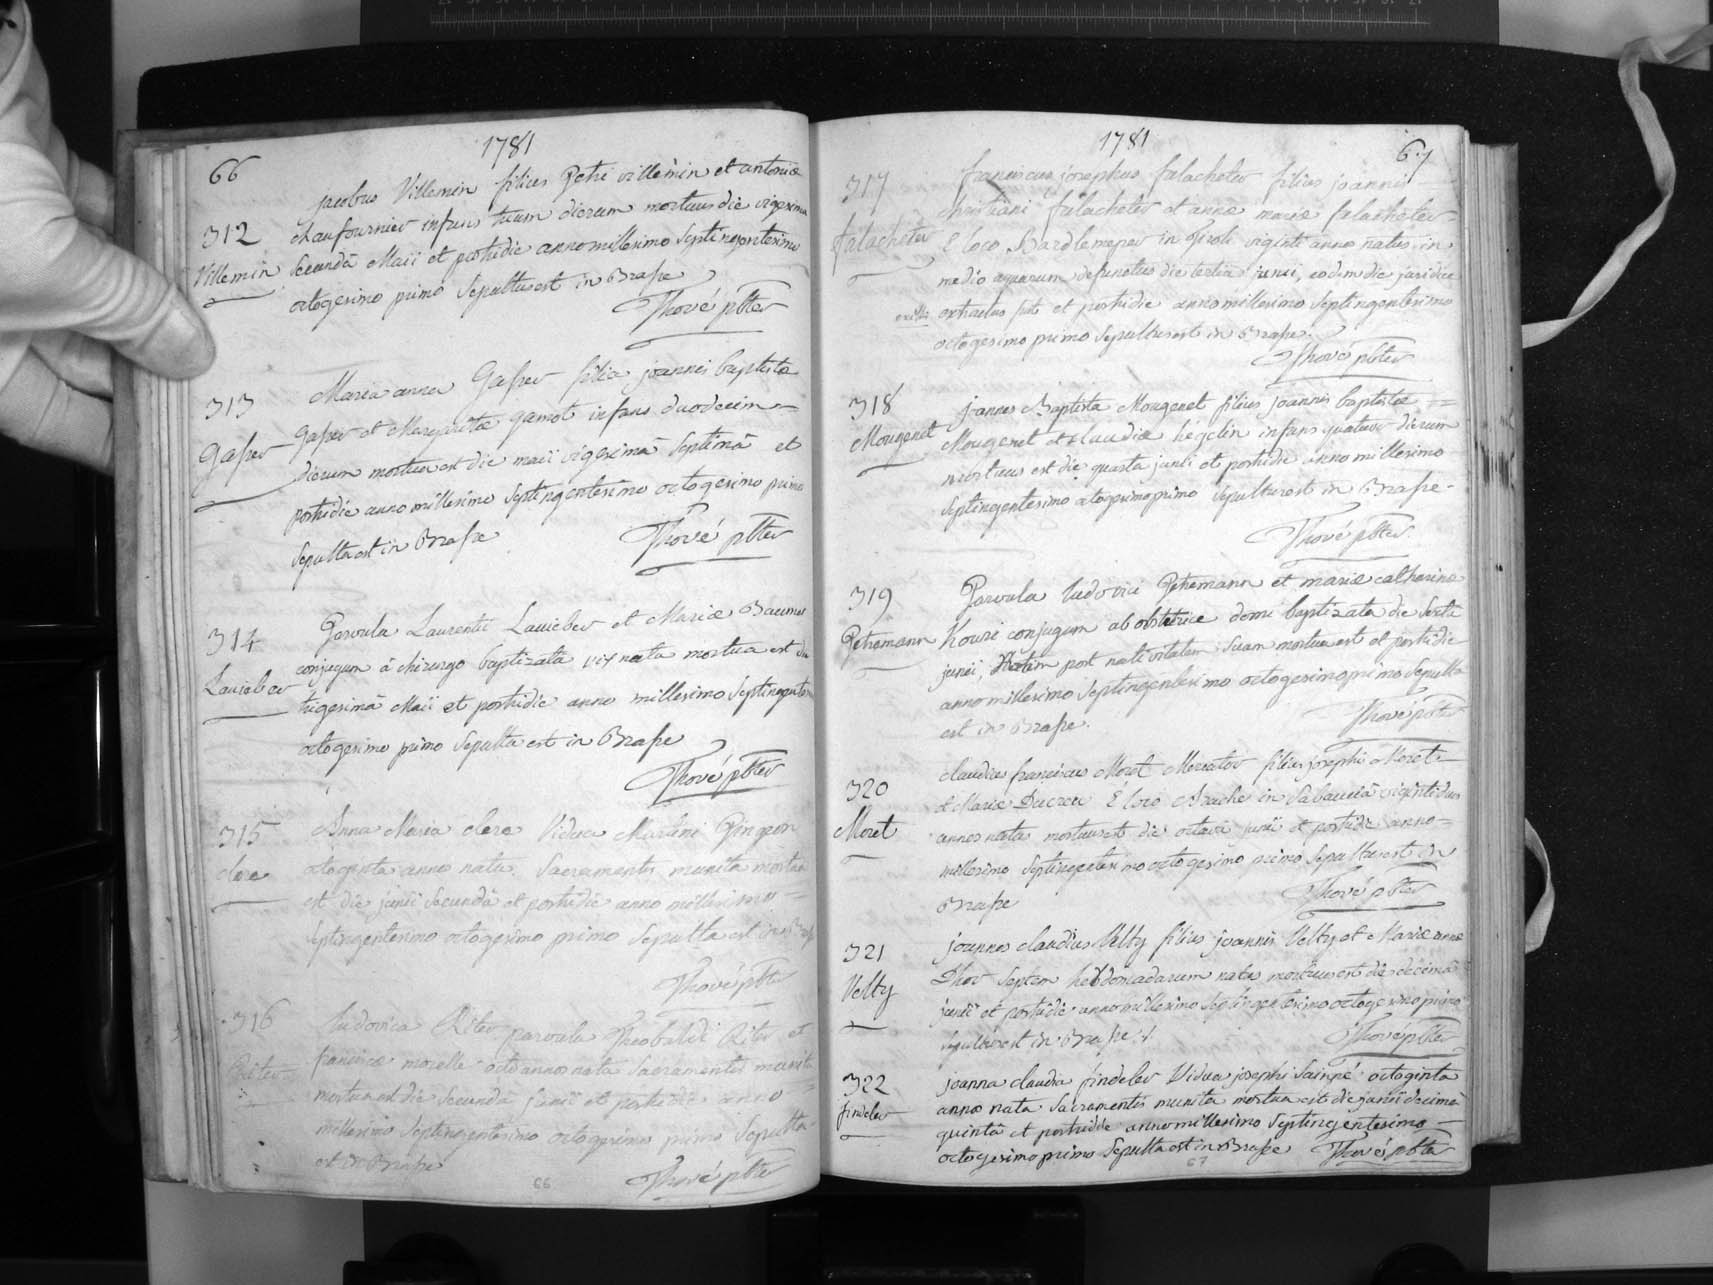 1781
66
jacobus Villemin filius Petri villemin et antoniæ
312
chaufournier infans trium dierum mortuus die vigesima
Villemin
secundâ Maii et postridie anno millesimo Septingentesimo
octogesimo primo Sepultus est in Brasse
Thové pbter
Maria anna Gasser filia joannis baptistæ
313
Gasser
Gasser et Margaritæ gamot infans duodecim
dierum mortua est die maii vigesimâ Septimâ et
postridie anno millesimo Septingentesimo octogesimo primo
Sepulta est in Brasse
Thové pbter
Parvula Laurentii Lauieber et Mariæ Baumer
314
Lauieber
conjugum â chirurgo baptizata vix nata mortua est die
trigesimâ Maii et postridie anno millesimo Septingentesimo
octogesimo primo Sepulta est in Brasse
Thové pbter
315
Anna Maria clere Vidua Martini Pingeon
clere
octoginta anno nata Sacramentis munita mortua
est die junii Secundâ et postridie anno millesimo
Septingentesimo octogesimo primo Sepulta est in Brasse
Thové pbter
316
Ludovica Riter parvula Theobaldi Riter et
Riter
franciscæ morelle octo annos nata Sacramentis munita
mortua est die Secundâ junii et postridie anno
millesimo Septingentesimo octogesimo primo Sepulta
est in Brasse
Thové pbter
66
1781
67
317
franciscus josephus falacheter filius joannis
falacheter
christiani falacheter et annæ mariæ falacheter
E loco in Tiroli viginti anno natus in
medio aquarum defunctus die tertiâ junii, eodem die juridice
extractus fuit et postridie anno millesimo Septingentesimo
octogesimo primo Sepultus est in Brasse.
Thové pbter
318
Mougenet
joannes Baptista Mougenet filius joannis baptistæ
Mougenet et claudiæ hégelin infans quatuor dierum
mortuus est die quarta junii et postridie anno millesimo
Septingentesimo octogesimo primo Sepultus est in Brasse.
Thové pbter
319
Petremann
Parvula ludovici Petremann et mariæ catharinæ
Kouri conjugum ab obstetrice domi baptizata die Sextâ
junii, Statim post nativitatem Suam mortua est et postridie
anno millesimo Septingentesimo octogesimo primo Sepulta
est in Brasse.
Thové pbter
320
Moret
claudius franciscus Moret Mercator filius josephi Moret
et Mariæ Ducreu E loco Arache in Sabaudiâ viginti duos
annos natus mortuus est die octavâ junii et postridie anno
millesimo Septingentesimo octogesimo primo Sepultus est in
Brasse
Thové pbter
321
Velty
joannes claudius Velty filius joannis Velty et Mariæ annæ
Thor Septem hebdomadarum natus mortuus est die decimâ
junii et postridie anno millesimo Septingentesimo octogesimo primo
Sepultus est in Brasse
Thové pbter
322
findeler
joanna claudia findeler Vidua josephi Sainpé octoginta
annos nata Sacramentis munita mortua est die junii decimâ
quintâ et postridie anno millesimo Septingentesimo
octogesimo primo Sepulta est in Brasse Thové pbter
67